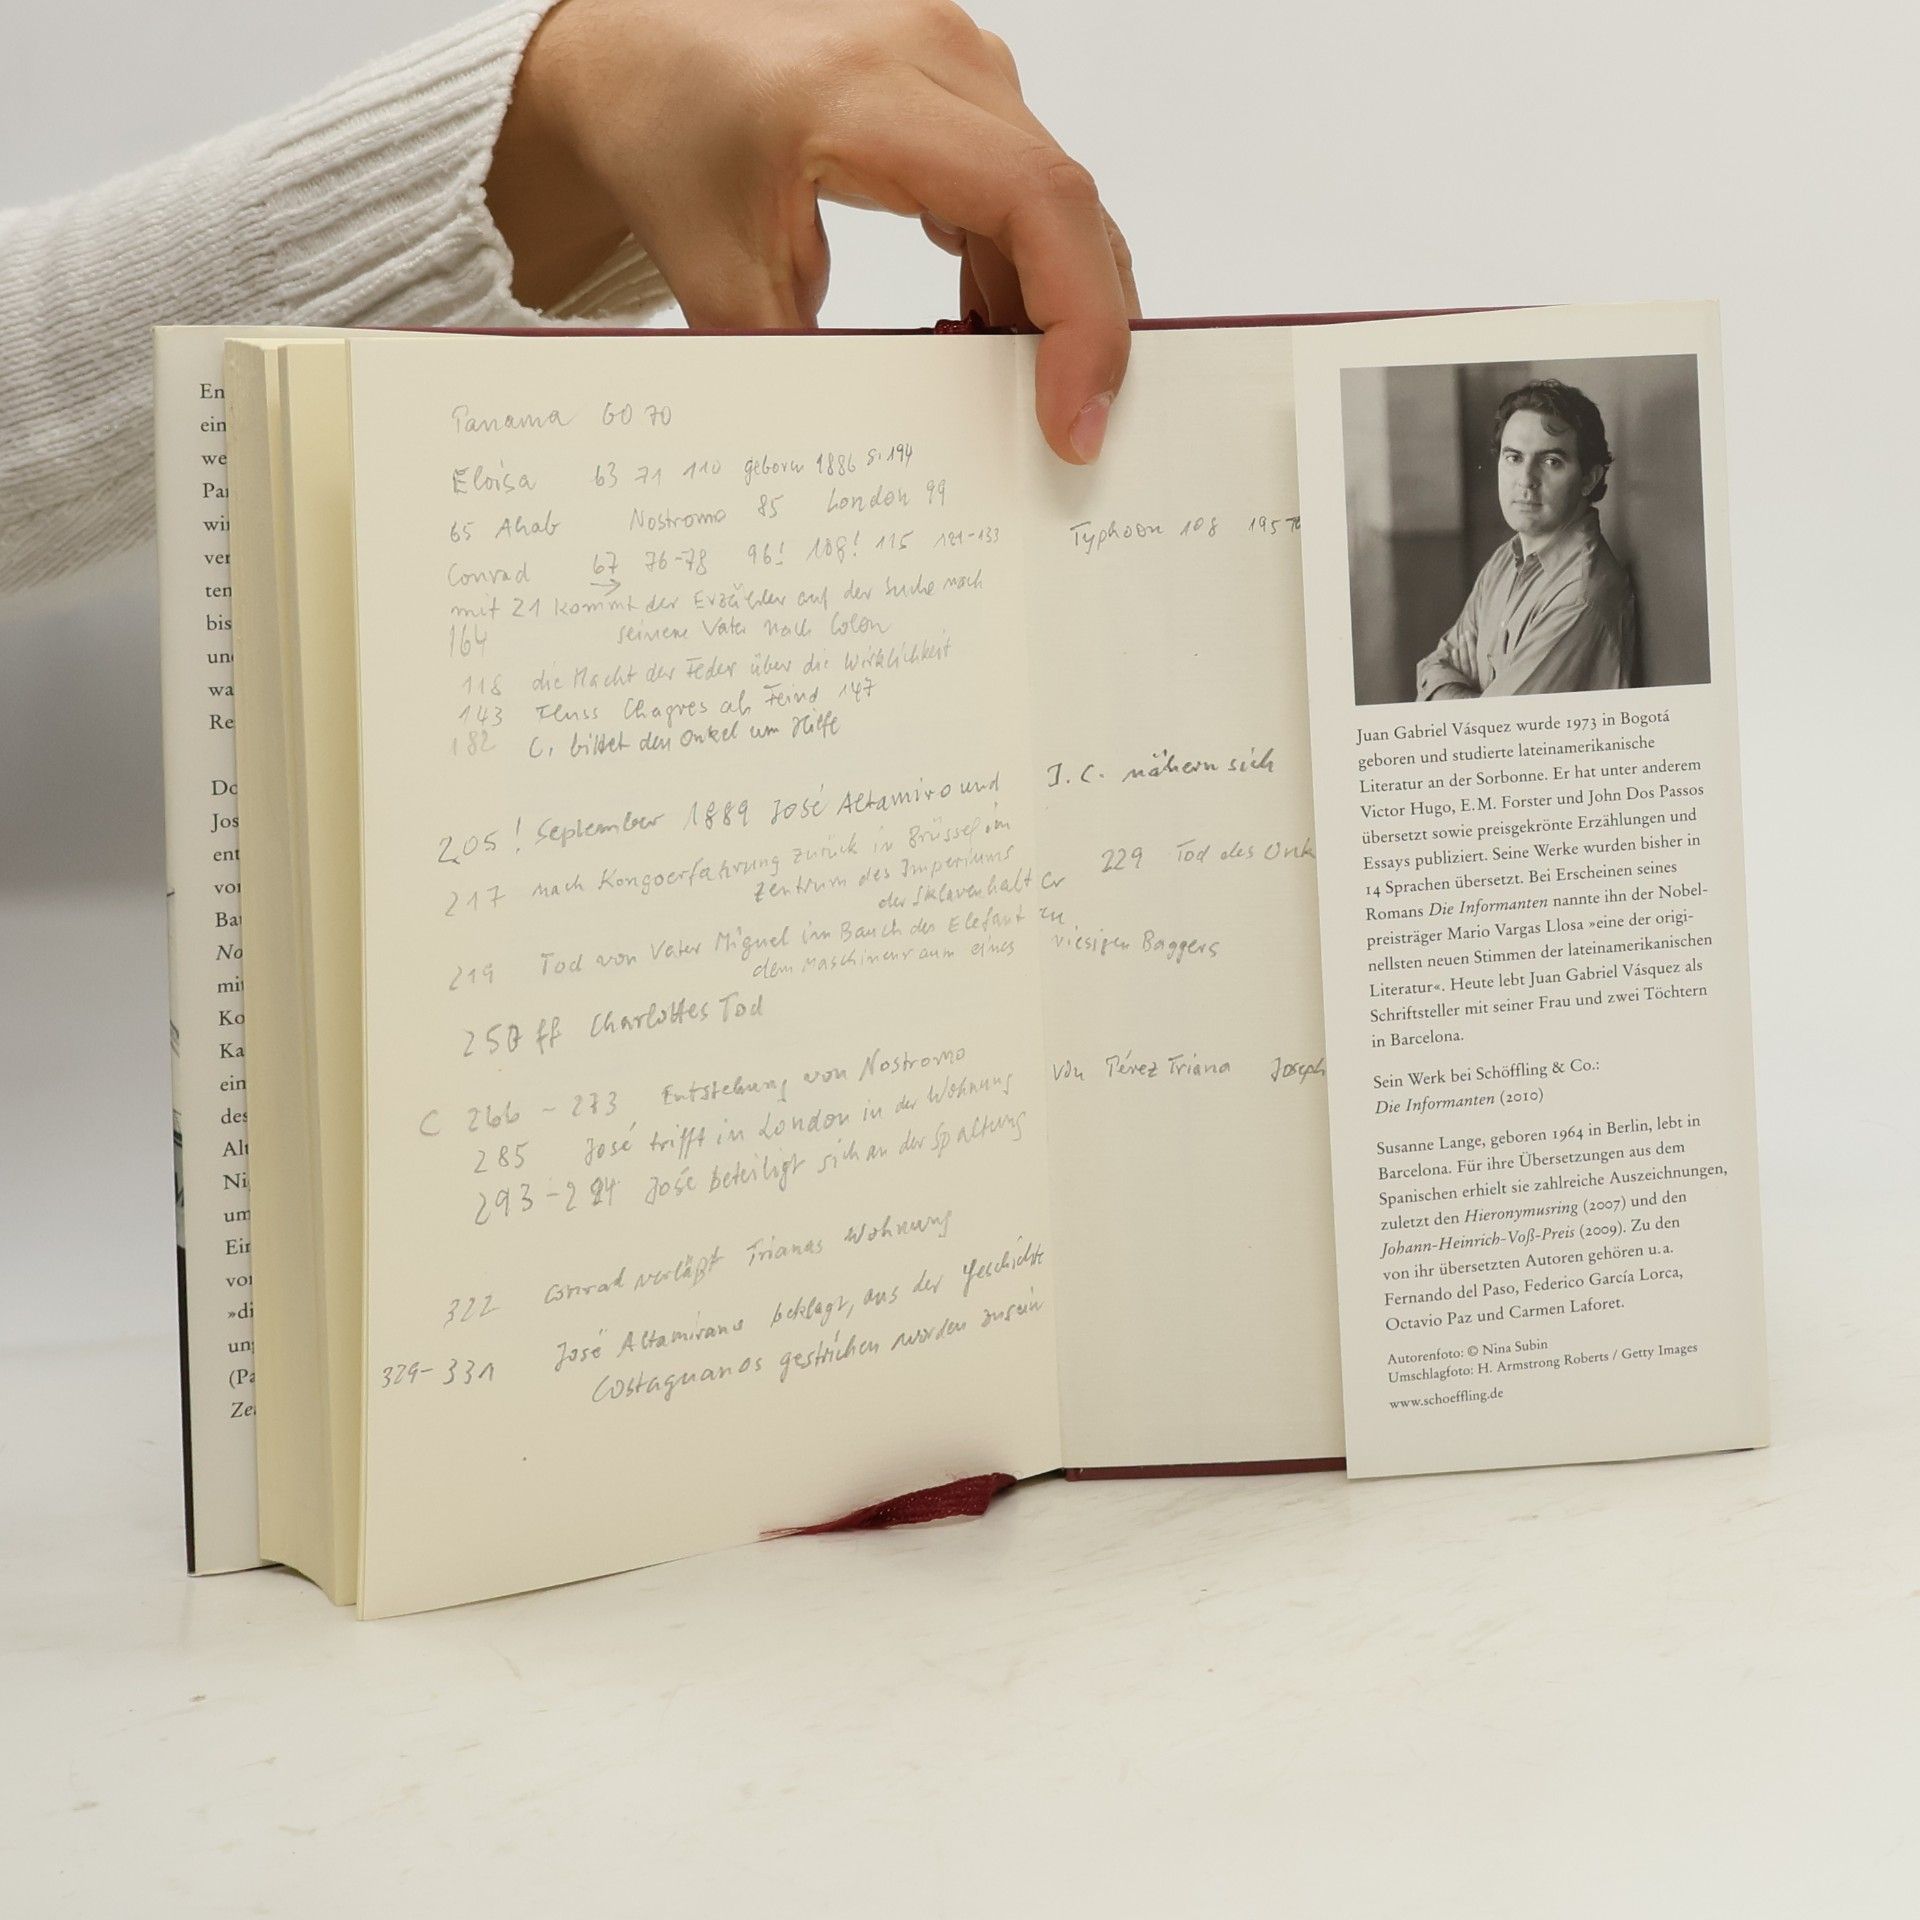 En
ein
we
Pa
wi
ver
ten
bis
un
wa
Re
Do
Jos
ent
vo
Ba
No
mi
Ko
Ka
ein
des
Alt
Ni
um
Ein
vo
»di
un
(Pa
Ze
Panama 60 70
Eloisa 63 71 110 geboren 1886 S. 194
65 Ahab Nostromo 85 London 99
Conrad 67 76-78 96! 108! 115 121-133 Typhoon 108 195
→
mit 21 kommt der Erzähler auf der Suche nach
164 seinem Vater nach Colon
118 die Macht der Feder über die Wirklichkeit
143 Fluss Chagres als Feind 147
182 C. bittet den Onkel um Hilfe
205! September 1889 José Altamiro und J. C. nähern sich
217 nach Kongoerfahrung zurück in Brüssel im
Zentrum des Imperiums
der Sklavenhalter 229 Tod des Onk
219 Tod von Vater Miguel im Bauch des Elefanten
dem Maschinenraum eines riesigen Baggers
250 ff Charlottes Tod
C 266 - 273 Entstehung von Nostromo
285 José trifft in London in der Wohnung von Pérez Triana Joseph
293-294 José beteiligt sich an der Spaltung
322 Conrad verläßt Trianas Wohnung
329-331 José Altamirano beklagt, aus der Geschichte
Costaguanas gestrichen worden zu sein
Juan Gabriel Vásquez wurde 1973 in Bogotá
geboren und studierte lateinamerikanische
Literatur an der Sorbonne. Er hat unter anderem
Victor Hugo, E. M. Forster und John Dos Passos
übersetzt sowie preisgekrönte Erzählungen und
Essays publiziert. Seine Werke wurden bisher in
14 Sprachen übersetzt. Bei Erscheinen seines
Romans Die Informanten nannte ihn der Nobel-
preisträger Mario Vargas Llosa »eine der origi-
nellsten neuen Stimmen der lateinamerikanischen
Literatur«. Heute lebt Juan Gabriel Vásquez als
Schriftsteller mit seiner Frau und zwei Töchtern
in Barcelona.
Sein Werk bei Schöffling & Co.:
Die Informanten (2010)
Susanne Lange, geboren 1964 in Berlin, lebt in
Barcelona. Für ihre Übersetzungen aus dem
Spanischen erhielt sie zahlreiche Auszeichnungen,
zuletzt den Hieronymusring (2007) und den
Johann-Heinrich-Voß-Preis (2009). Zu den
von ihr übersetzten Autoren gehören u. a.
Fernando del Paso, Federico García Lorca,
Octavio Paz und Carmen Laforet.
Autorenfoto: © Nina Subin
Umschlagfoto: H. Armstrong Roberts / Getty Images
www.schoeffling.de